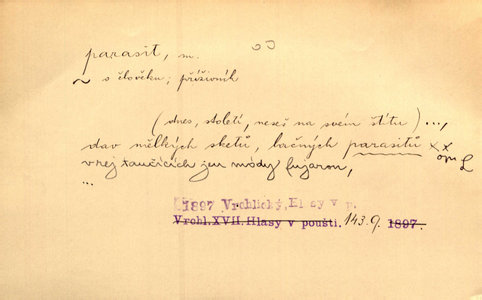 parasit, m.
~ o člověku; příživník
(dnes, století, neseš na svém štítu) ...,
dav mělkých sketů, lačných parasitů
v rej tančících jen módy fujarou,
...
1897 Vrchlický, Hlasy v p.
Vrchl. XVII. Hlasy v poušti. 143. 9. 1897.